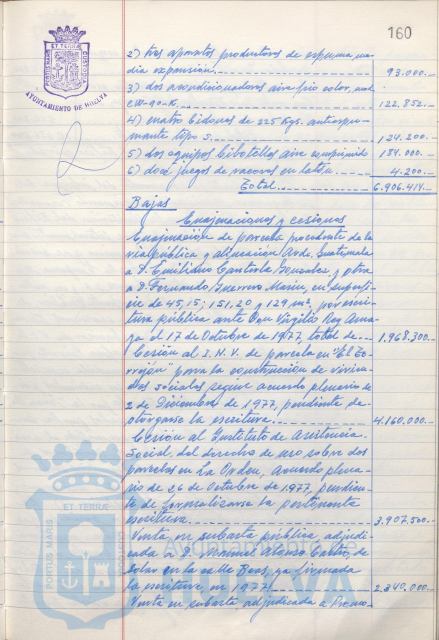 160
PORTUS MARIS ET TERRAE CUSTODIO
AYUNTAMIENTO DE HUELVA
2) tres aparatos productores de espuma media expansión. 93.000.—
3) dos acondicionadores aire frío solar, mod
CW-90-K. 122.852.—
4) cuatro bidones de 225 Kgs. antiespumante tipo S. 124.200.—
5) dos equipos bibotellas aire comprimido 184.000.—
6) doce juegos de racores en latón 4.200.—
Total 6.906.414.—
Bajas
Enajenaciones y cesiones
Enajenación de parcela procedente de la
vía pública y alineación Avda. Guatemala
a D. Emiliano González, y otra
a D. Fernando Guerrero Marín, en superfi-
cie de 45,15; 151,20 y 129 m², por escri-
tura pública ante Don Virgilio Rey Ama-
ya el 17 de Octubre de 1977, total de 1.968.300.—
Cesión al I.N.V. de parcela en "El To-
rrejón" para la construcción de vivien-
das sociales según acuerdo plenario de
2 de Diciembre de 1977, pendiente de
otorgarse la escritura. 4.160.000.—
Cesión al Instituto de Asistencia
Social, del derecho de uso sobre dos
parcelas en La Orden, Acuerdo plena-
rio de 26 de Octubre de 1977, pendien-
te de formalizarse la pertinente
escritura. 3.907.500.—
Venta, en subasta pública, adjudi-
cada a D. Manuel Alonso, de
solar en la calle Beas, ya firmada
la escritura en 1977. 2.340.000.—
Venta en subasta adjudicada a Promo-
PORTUS MARIS ET TERRAE CUSTODIO
HUELVA